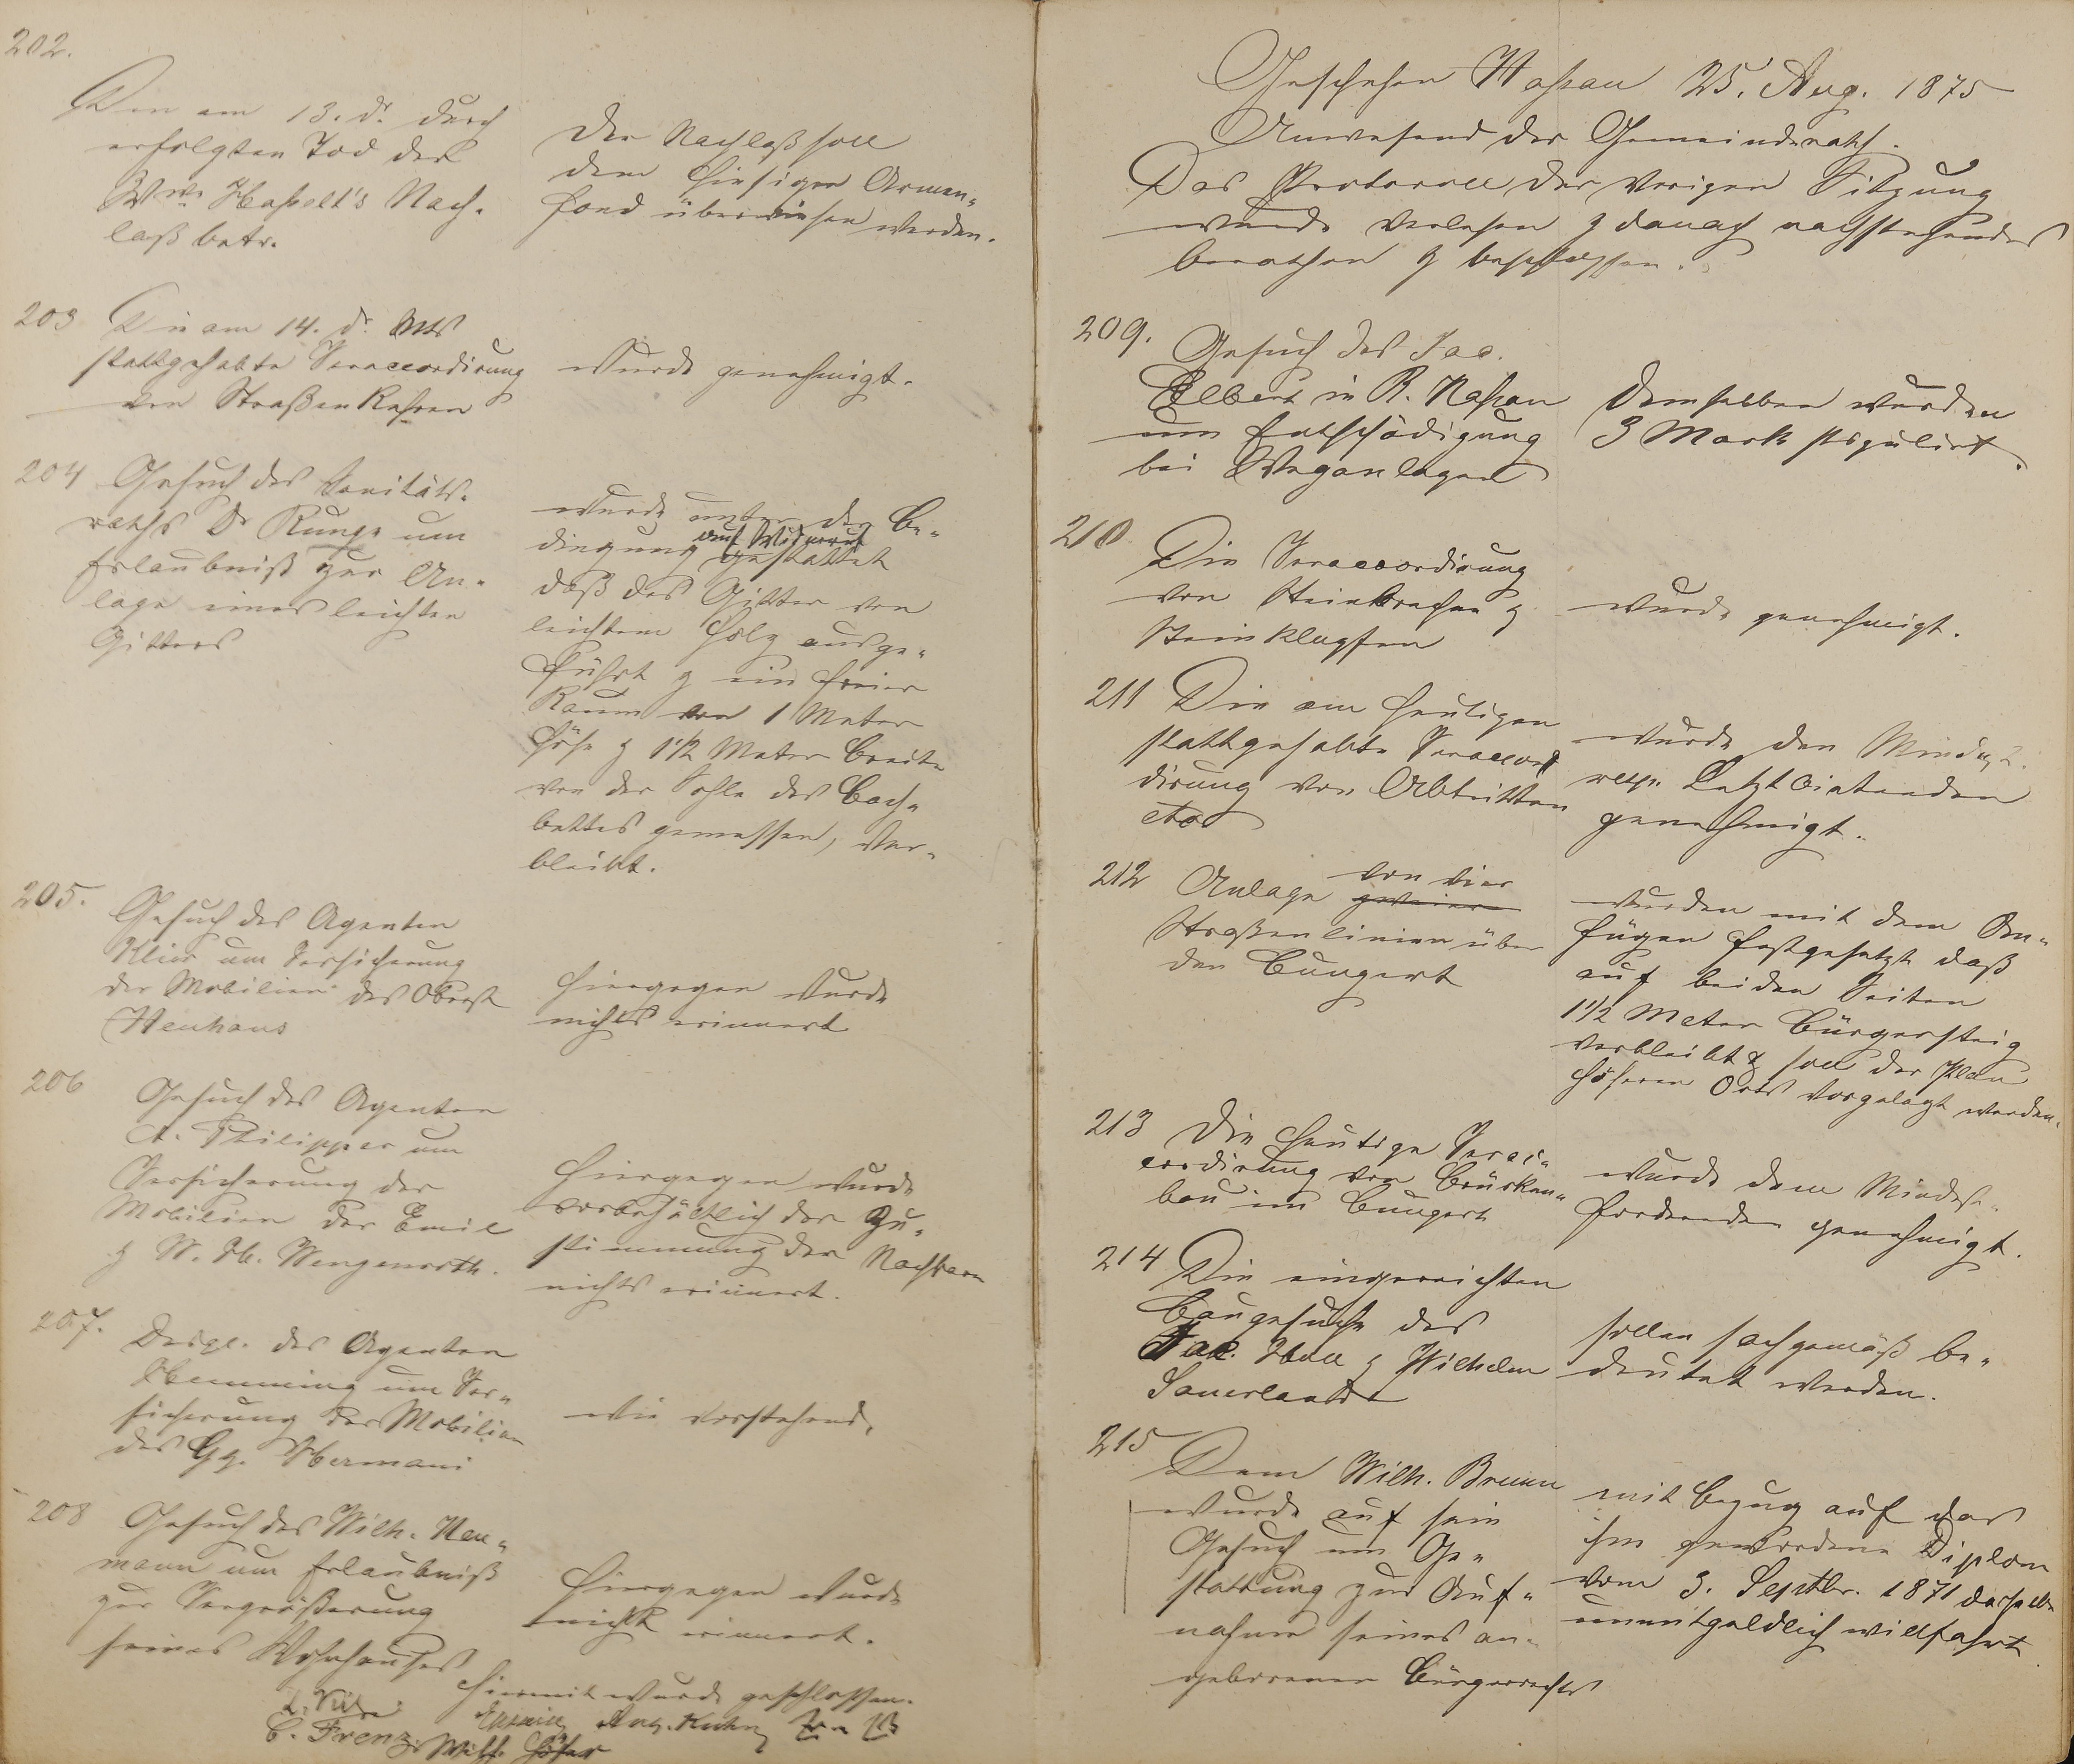 202.
Den am 13. d. durch
erfolgten Tod der
Wwe Haßelt's Nach-
laß betr.
Der Nachlaß soll
dem hiesigen Armen-
fond überwiesen werden.
203 Die am 14. d. Mts
stattgehabte Veraccordirung
von Straßenkehren
wurde genehmigt.
204 Gesuch des Sanitäts-
raths Dr Runge um
Erlaubniß zur An-
lage eines leichten
Gitters
wurde unter der Be-
auf Widerruf
dingung gestattet
daß das Gitter von
leichtem Holz ausge-
führt & ein freier
Raum von 1 Meter
Höhe & 1 1/2 Meter Breite
von der Sohle des Bach-
bettes gemessen, ver-
bleibt.
205. Gesuch des Agenten
um Versicherung
der Mobilien des Oberst
Neuhaus
Hiergegen wurde
nichts erinnert
206 Gesuch des Agenten
A. Philippar um
Versicherung der
Mobilien der Emil
& W. Th. Wengenroth.
Hiergegen wurde
vorbehältlich der Zu-
stimmung der Nachbarn
nichts erinnert.
207. Desgl. des Agenten
um Ver-
sicherung der Mobilien
des Gg. Hermani
wie vorstehend.
208 Gesuch des Wilh. Neu-
mann um Erlaubniß
zur Vergrößerung
seines Wohnhauses
Hiergegen wurde
nicht erinnert.
Hiermit wurde geschlossen.
Aug. Kuhn
C. Frenz. Wilh. Höfer
Geschehen Naßau 25. Aug. 1875
Anwesend der Gemeinderath.
Das Protocoll der vorigen Sitzung
wurde verlesen & danach nachstehendes
berathen & beschlossen.
209. Gesuch des Jac.
Elbert in B. Naßau
um Entschädigung
bei Weganlagen
Demselben wurden
3 Mark stipulirt.
210 Die Veraccordirung
von Steinbrechen &
Steinklopfen
wurde genehmigt.
211 Die am heutigen
stattgehabte Veraccor
dirung von Abtritten
etc
wurde den Mindest
resp. Letztbietenden
genehmigt.
212 Anlage zweier von vier
Straßenlinien über
den Bungert
wurden mit dem An-
fügen festgesetzt daß
auf beiden Seiten
1 1/2 Meter Bürgersteig
verbleibt & soll der Plan
höheren Orts vorgelegt werden.
213 Die heutige Verac-
cordirung von Brücken-
bau im Bungert
wurde dem Mindest-
fordernden genehmigt.
214 Die eingereichten
Baugesuche des
Jac. Noll & Wilhelm
Sauerlaender
sollen sachgemäß be-
deutet werden.
215 Dem Wilh. Bruun
wurde auf sein
Gesuch um Ge-
stattung zur Auf-
nahme seines an-
geborenen Bürgerrechts
mit Bezug auf das
ihm gewordene Diplom
vom 3. Septbr. 1871 dasselbe
unentgeldlich willfahrt